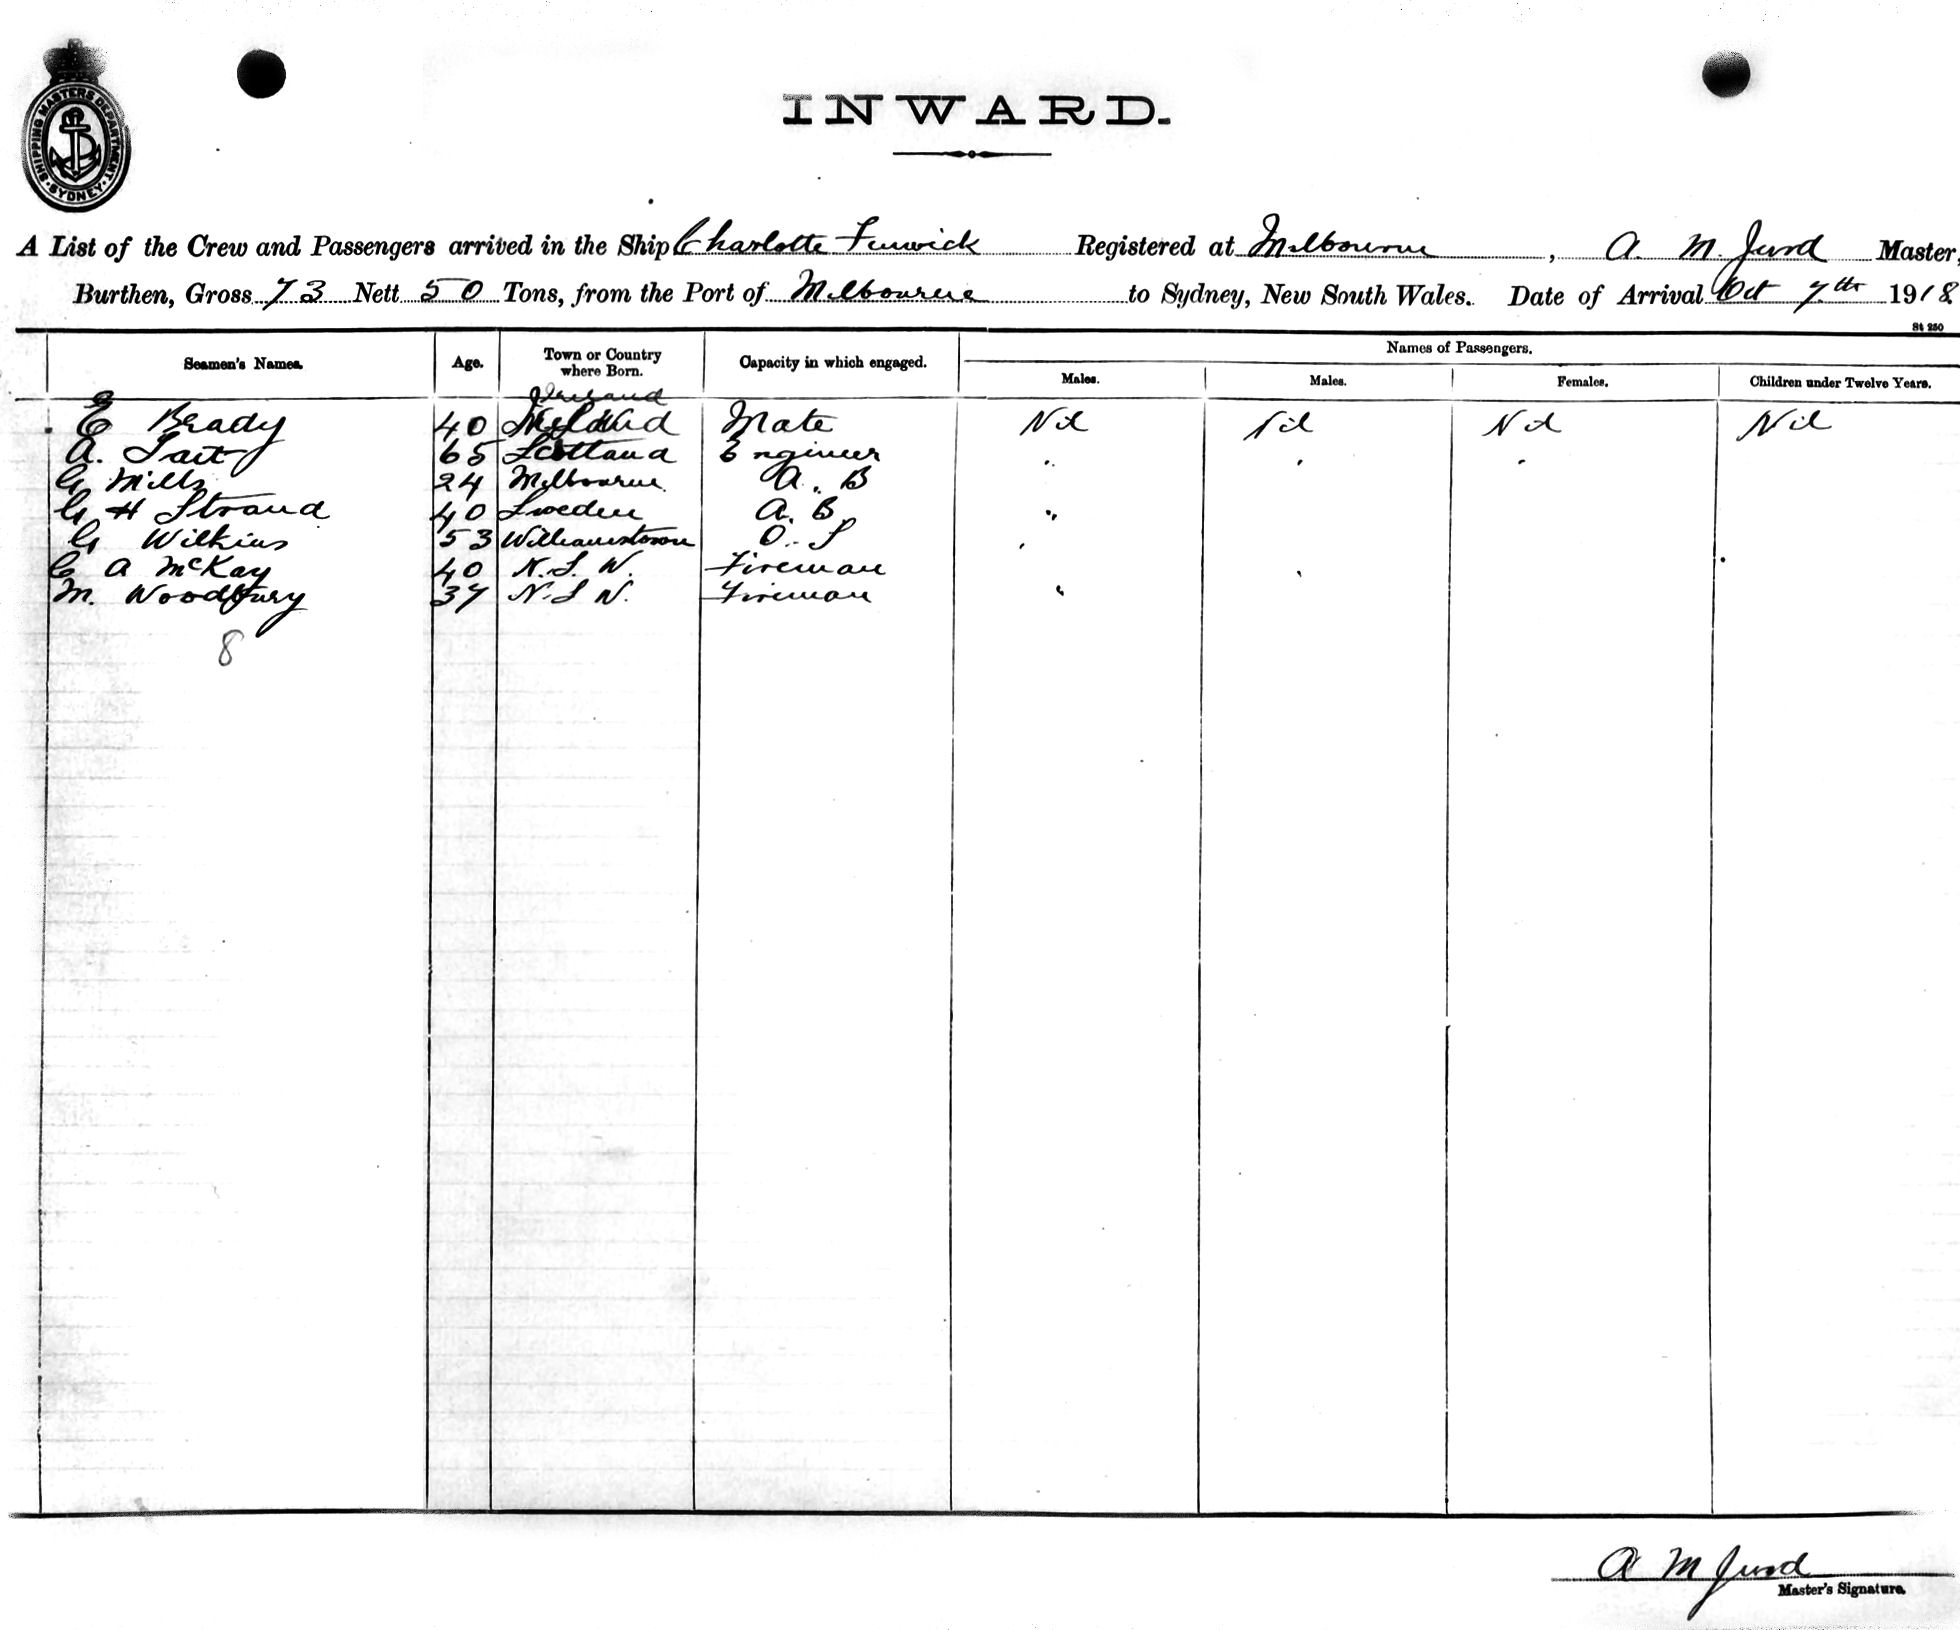 SHIPPING MASTERS DEPARTMENT
SYDNEY
INWARD.
A List of the Crew and Passengers arrived in the Ship Charlotte Fenwick Registered at Melbourne, A. M. Jurd Master,
Burthen, Gross 73 Nett 50 Tons, from the Port of Melbourne to Sydney, New South Wales. Date of Arrival Oct 7th 1918
St 250
Seamen's Names. Age. Town or Country where Born. Capacity in which engaged. Names of Passengers.
Males. Males. Females. Children under Twelve Years.
Ireland
E Brady 40 Mate Nil Nil Nil Nil
A. Tait 65 Scotland Engineer
G Mills 24 Melbourne A. B
G H Strand 40 Sweden A. B.
G Wilkins 53 Williamstown O. S
C A McKay 40 N. S. W. Fireman
M. Woodbury 37 N. S W. Fireman
8
A M Jurd
Master's Signature.